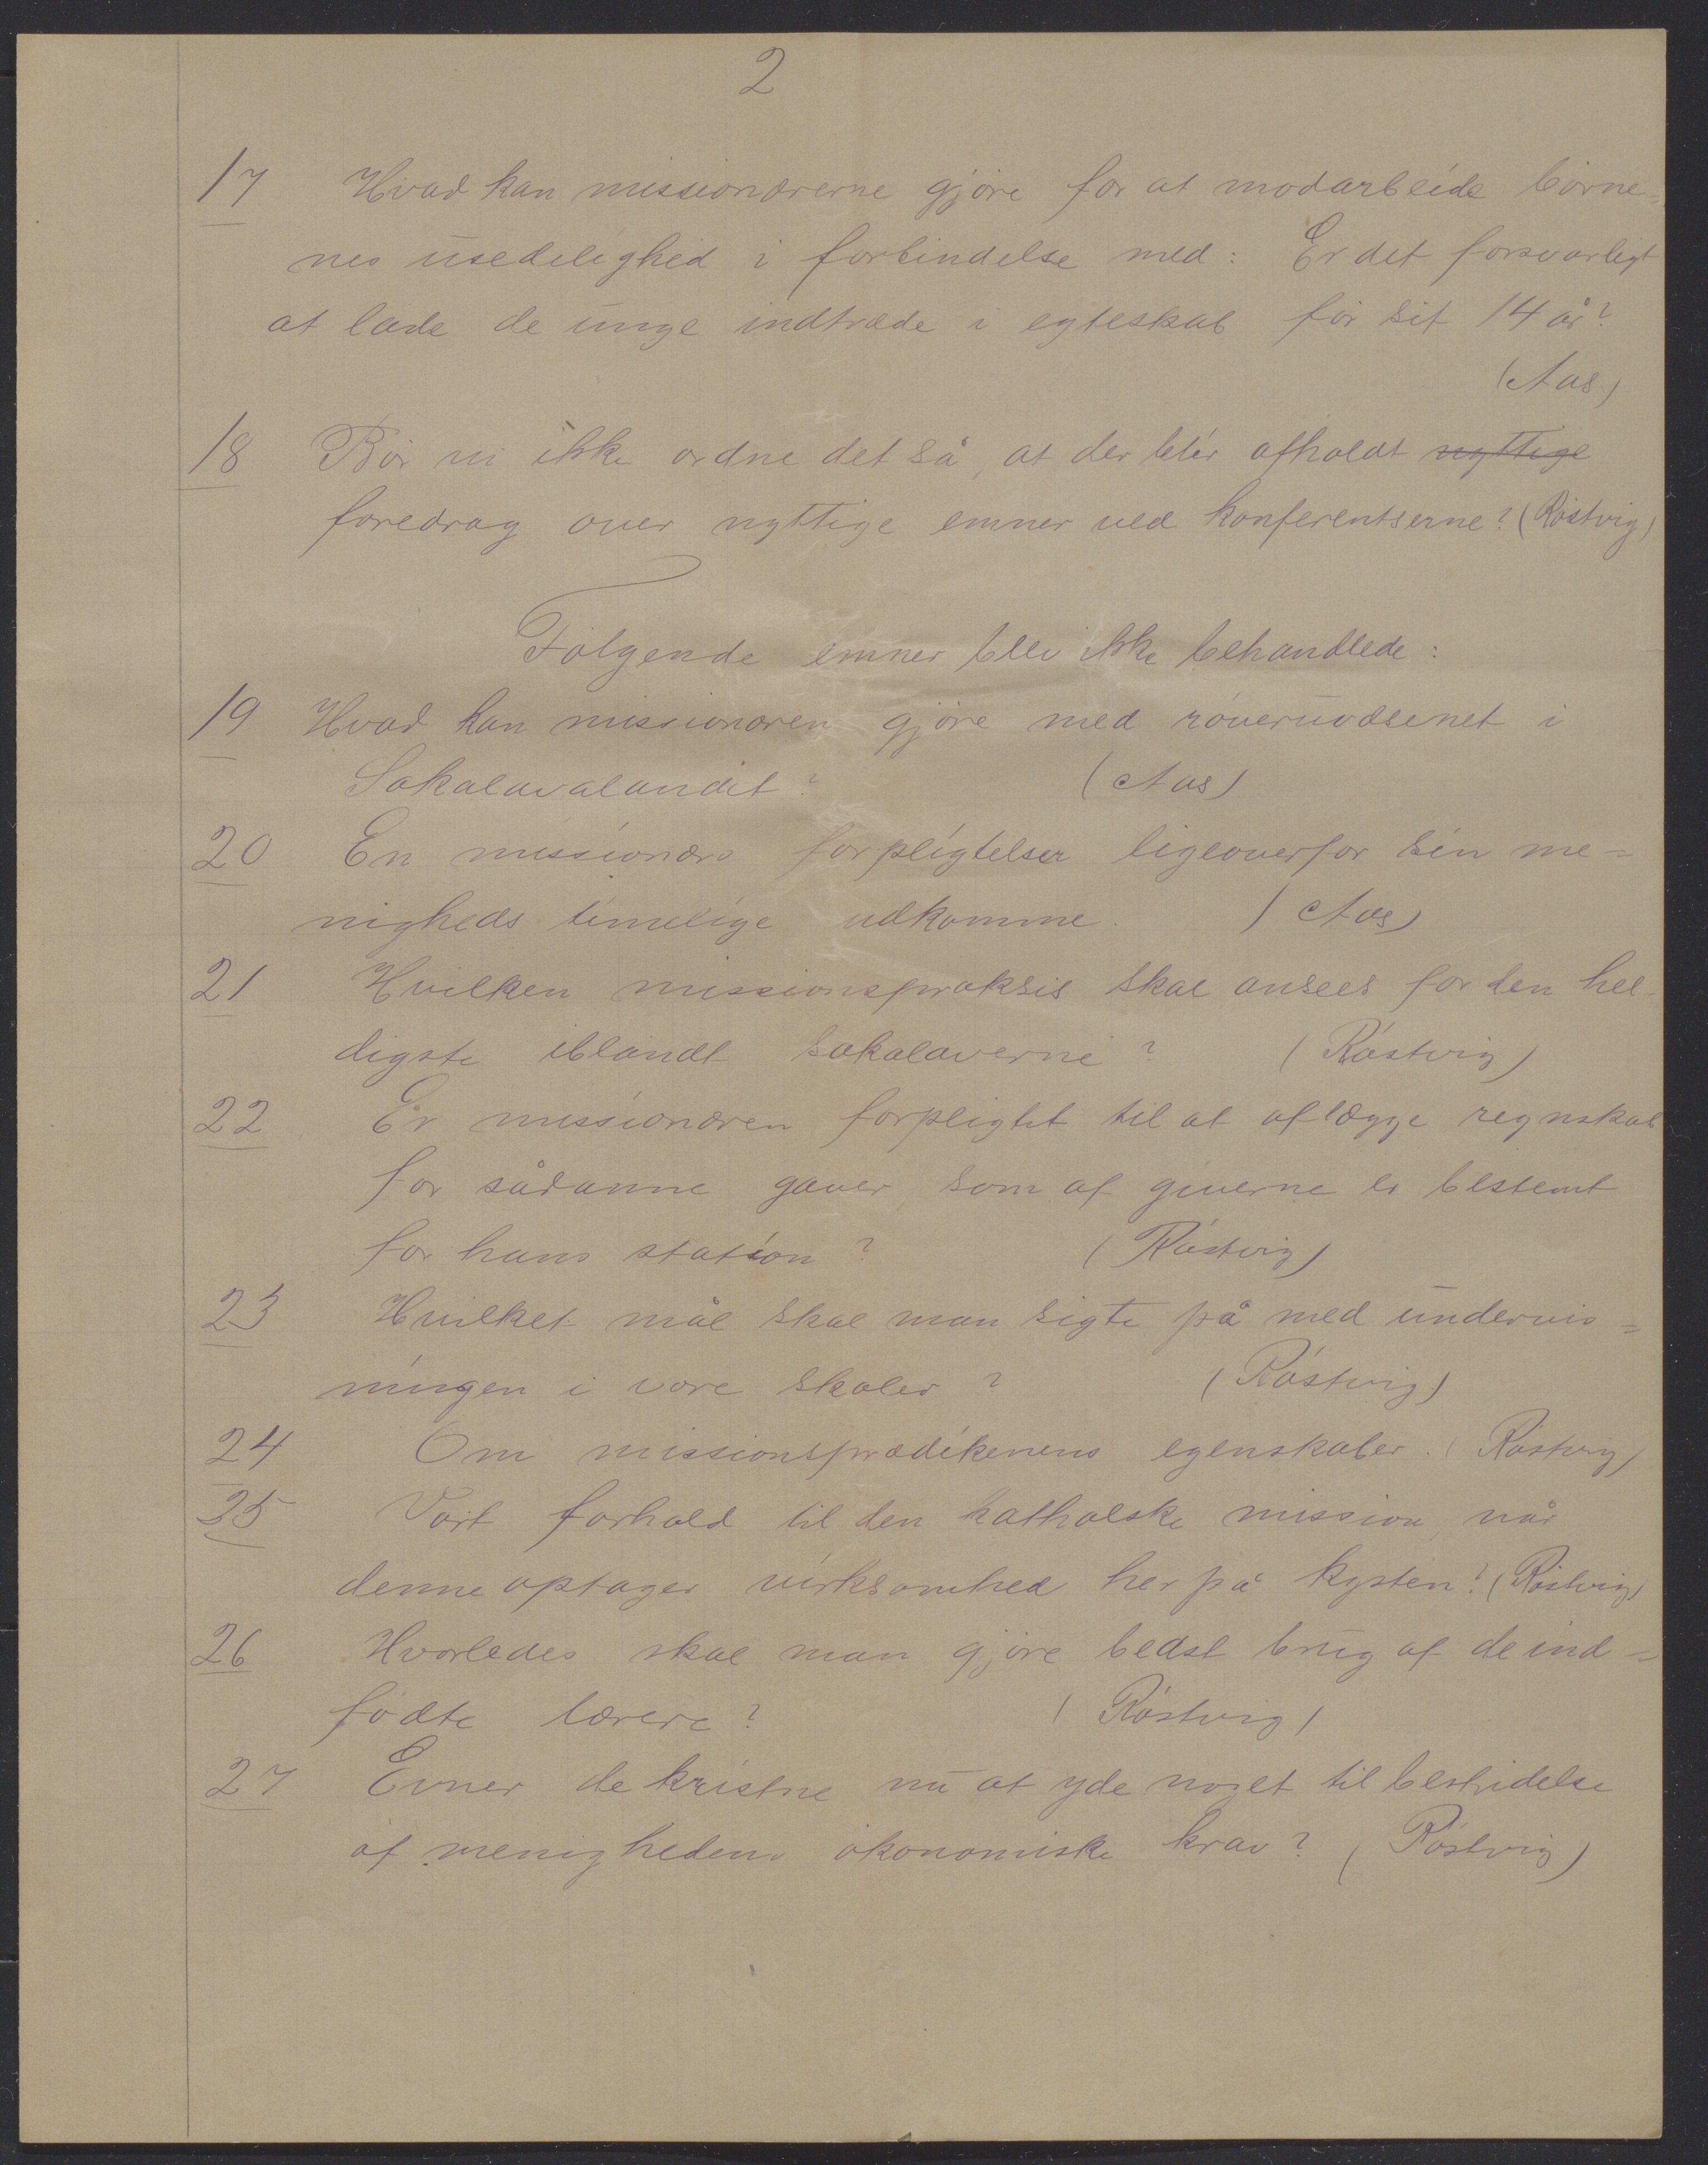 2
17 Hvad kan missionærerne gjøre for at modarbeide børne=
nes usedelighed i forbindelse med: Er det forsvarligt
at lade de unge indtræde i egteskab før sit 14 år?
(Aas)
18 Bør vi ikke ordne det så, at der blir afholdt nyttige
foredrag over nyttige emner ved konferentserne? (Röstvig)
Følgende emner blev ikke behandlede:
19 Hvad kan missionæren gjøre med røveruvæsenet i
Sakalavalandet? (Aas)
20 En missionærs forpligtelser ligeoverfor sin me=
nigheds timelige udkomme. (Aas)
21 Hvilken missionspraksis skal ansees for den hel-
digste iblandt sakalaverne? (Röstvig)
22 Er missionæren forpligtet til at aflægge regnskab
for sådanne gaver, som af giverne er bestemt
for hans station? (Röstvig)
23 Hvilket mål skal man sigte på med undervis=
ningen i vore skoler? (Röstvig)
24 Om missionsprædikenens egenskaber. (Röstvig)
25 Vort forhold til den katholske mission, når
denne optager virksomhed her på kysten? (Röstvig)
26 Hvorledes skal man gjøre bedst brug af de ind=
fødte lærere? (Röstvig)
27 Evner de kristne nu at yde noget til bestridelse
af menighedens økonomiske krav? (Röstvig)